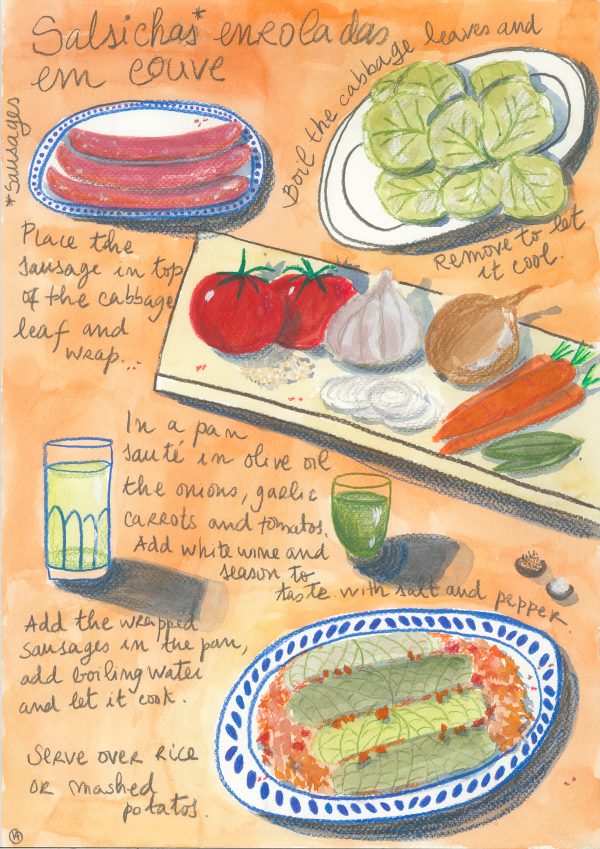 Salsichas* enroladas
em couve
*Sausages
Boil the cabbage leaves and
Remove to let
it cool.
Place the
sausage in top
of the cabbage
leaf and
wrap...
In a pan
sauté in olive oil
the onions, garlic
carrots and tomatos.
Add white wine and
season to
taste with salt and pepper.
Add the wrapped
sausages in the pan,
add boiling water
and let it cook.
Serve over rice
or mashed
potatos.